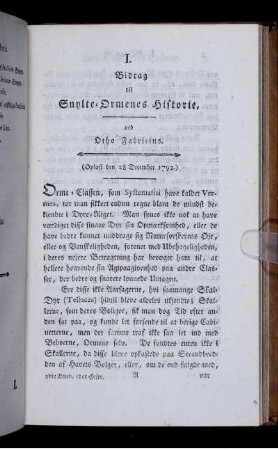 I.
Bidrag
til
Snylte-Ormenes Historie,
ved
Otho Fabricius.
(Oplæst den 28 December 1792.)
Orme-Classen, som Systematici have kaldet Ver-
mes, tør man sikkert endnu regne blant de mindst be-
kiendte i Dyre-Riget. Man synes ikke nok at have
værdiget disse smaae Dyr sin Opmærksomhed, eller de
have bedre kunnet unddrage sig Naturforskerens Øje,
eller og Vanskeligheden, forenet med Ubehageligheden,
i deres nøjere Betragtning har bevæget ham til, at
hellere henvende sin Agtpaagivenhed paa andre Clas-
ser, der bedre og snarere lønnede Umagen.
Ere disse ikke Aarsagerne, hvi saamange Skal-
Dyr (Testacea) hidtil bleve aldeles ukiendte i Skal-
lerne, som deres Boliger, fik man dog Tid efter an-
den fat paa, og kunde let forsends til at berige Cabi-
netterne, men der samme traf ikke saa let ind med
Beboerne, Ormene selv. De fandtes enten ikke i
Skallerne, da disse bleve opkastede paa Strandbred-
den af Havets Bølger, eller, om de end fulgde med,
2det Bind, 2det Hefte.
A
var
I.